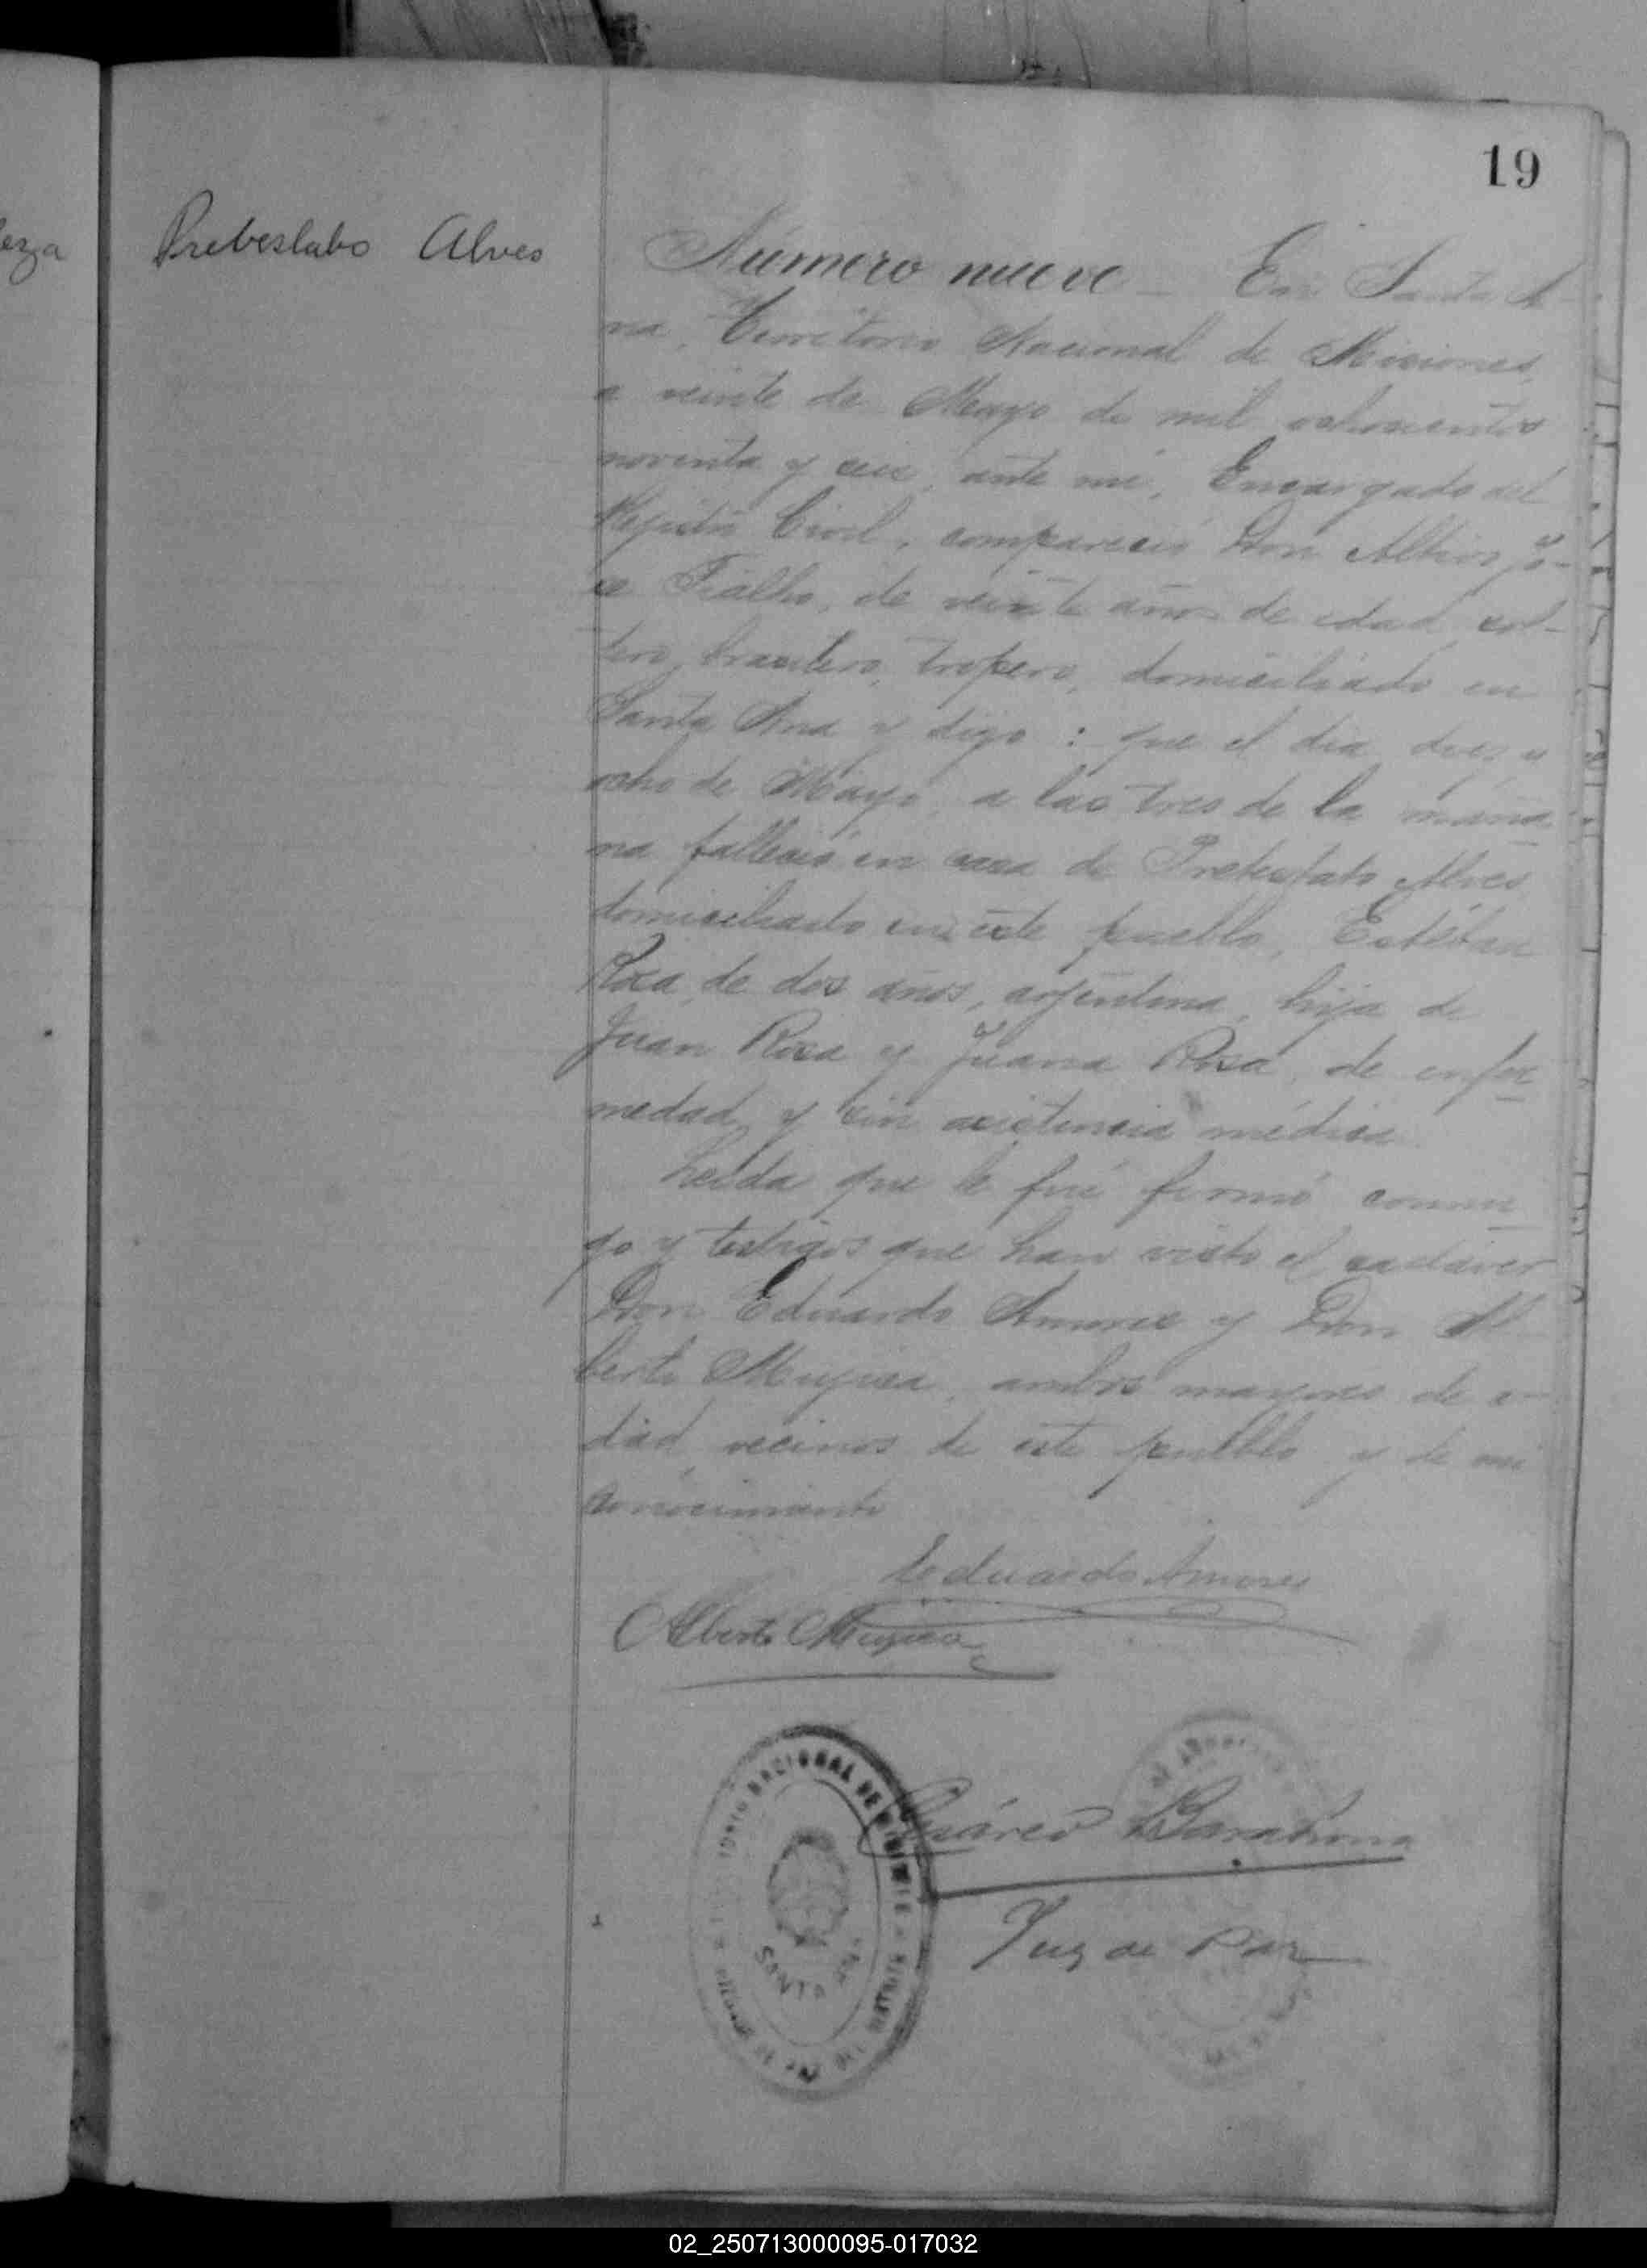 19
eza
Prebeslabo Alves
Número nueve - En Santa A-
na, Territorio Nacional de Misiones,
a veinte de Mayo de mil ochocientos
noventa y seis, ante mi, Encargado del
Registro Civil, compareció Don José
Fialho, de veinte años de edad, sol-
tero, brasilero, tropero, domiciliado en
Santa Ana y dijo: que el dia diez y
ocho de Mayo, a las tres de la maña
na falleció en casa de Pretestato Alves
domiciliado en este pueblo, Estéban
Rosa, de dos años, argentina, hija de
Juan Rosa y Juana Rosa, de enfer
medad y sin asistencia médica.
Leida que le fué firmó conmi
go y testigos que han visto el cadáver
Don Eduardo Amores y Don Al
berto Mujica, ambos mayores de e-
dad, vecinos de este pueblo y de mi
conocimiento
Eduardo Amores
Alberto Mujica
Suárez Barahona
Juez de Paz
NACIONAL DE MISIONES
SANTA ANA
02_250713000095-017032